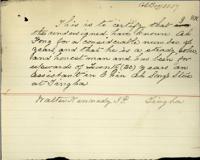 This is to certify that
the undersigned have known Ah
Fong for a considerable number of
years and that he is a steady sober
and honest man and has been for
upwards of Twenth (20) years an
assistant in C Win Ah Song's Store
at Tingha
Walter Kennedy J.P. Tingha